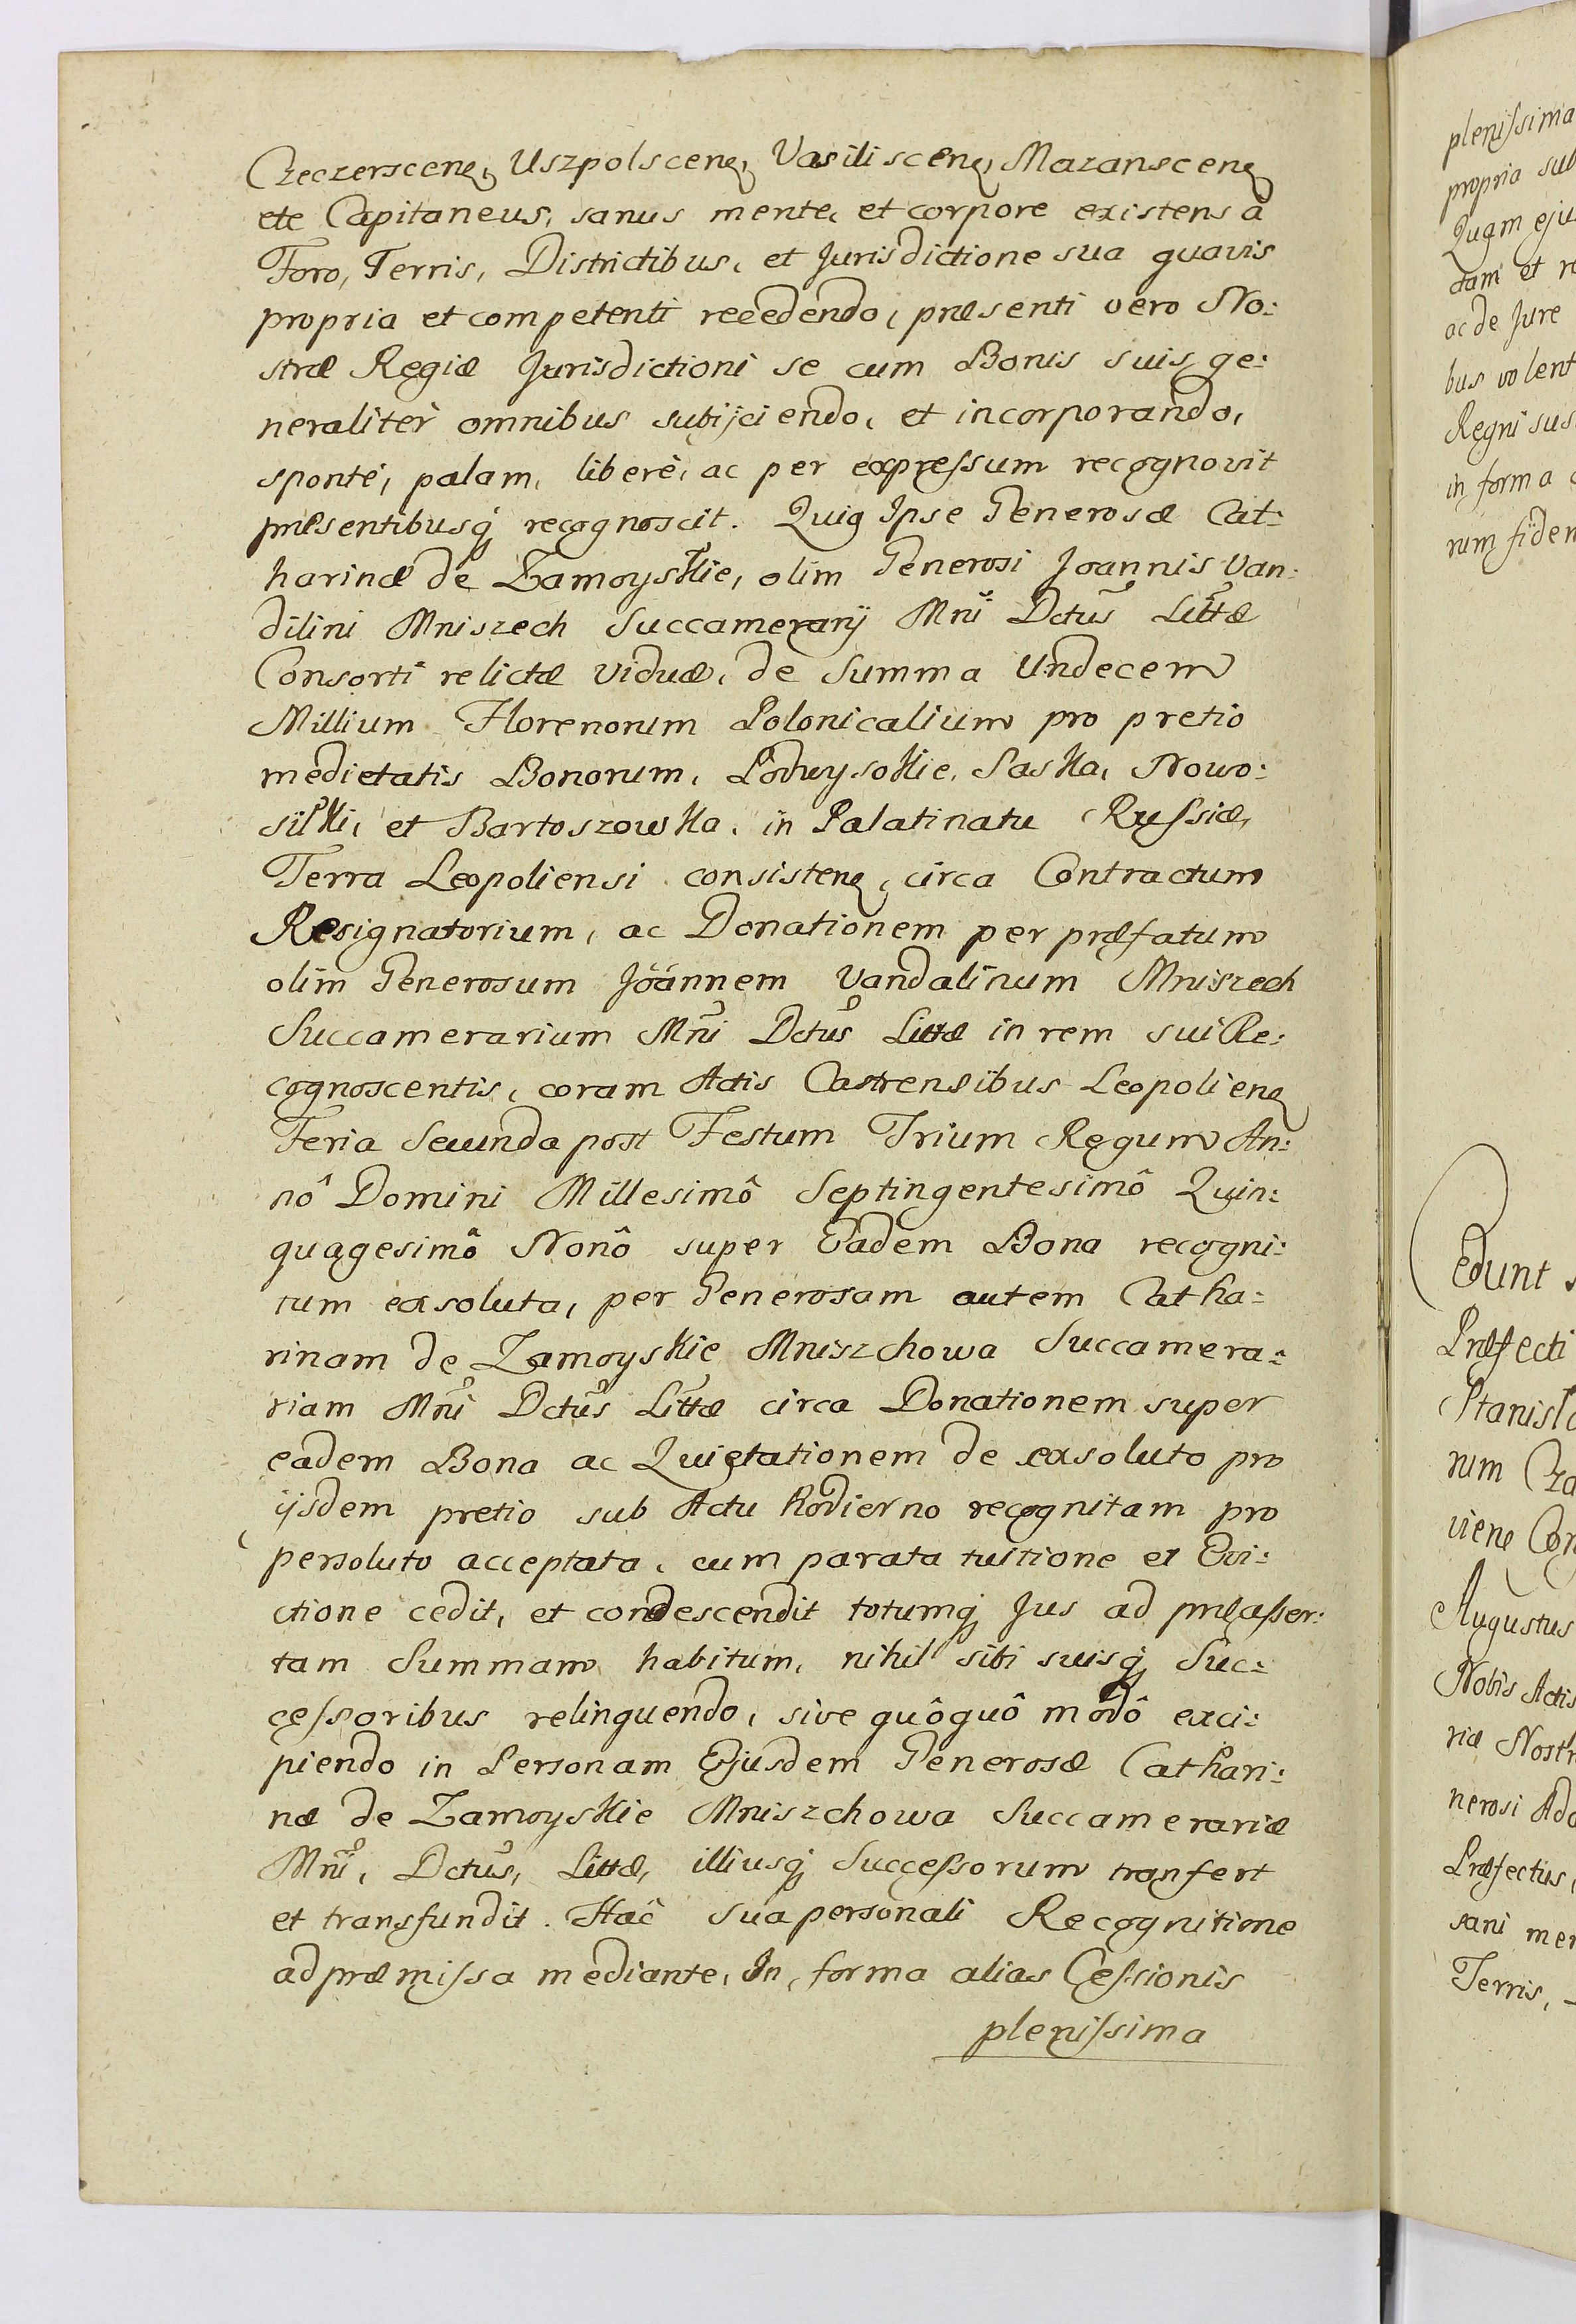 Czeczerscenꝫ, Uszpolscenꝫ, Vasiliscenꝫ, Mazanscenꝫ
etc Capitaneus, sanus mente, et corpore existens à
Foro, Terris, Districtibus, et Jurisdictione sua quavis
propria et competenti recedendo, præsenti vero No:
stræ Regiæ Jurisdictioni se cum Bonis suis ge:
neraliter omnibus subijciendo, et incorporando,
spontè, palam, liberè, ac per expreſsum recognovit
præsentibusq́ recognoscit. Quia Ipse Generosæ Cat:
harinæ de Zamoyskie, olim Generosi Joannis Van:
dilini Mniszech Succamerarij Mni Dctus Littæ
Consorti relictæ viduæ, de Summa Undecem
Millium Florenorum Polonicalium pro pretio
medietatis Bonorum, Podwysokie, Saska, Nowo:
siłki, et Bartoszowka, in Palatinatu Ruſsiæ,
Terra Leopoliensi consistenꝫ, circa Contractum
Resignatorium, ac Donationem per præfatum
olim Generosum Joánnem Vandalinum Mniszech
Succamerarium Mni Dctus Littæ in rem sui Re:
cognoscentis, coram Actis Castrensibus Leopolienꝫ
Feria Secunda post Festum Trium Regum An:
nô Domini Millesimô Septingentesimô Quin:
quagesimô Nonô super Eadem Bona recogni:
tum exsoluta, per Generosam autem Catha:
rinam de Zamoyskie Mniszchowa Succamera:
riam Mni Dctus Littæ circa Donationem super
eadem Bona ac Quietationem de exsoluto pro
ijsdem pretio sub Actu hodierno recognitam pro
persoluto acceptata, cum parata tuitione et Evi:
ctione cedit, et condescendit totumq́ Jus ad præaſser:
tam Summam habitum, nihil sibi suisq́ Suc:
ceſsoribus relinquendo, sive quôquô modô exci:
piendo in Personam Ejusdem Generosæ Cathari:
næ de Zamoyskie Mniszchowa Succamerariæ
Mni, Dctus, Littæ, illiusq́ Succeſsorum transfert
et transfundit. Hac Sua personali Recognitione
ad præmiſsa mediante, In forma alias Ceſsionis
pleniſsima
pleniſsima
propria sub
Quam eju
dam et r
ac de Jure
bus volent
Regni sus
in forma
rum fidem
Cedunt
Præfecti
Stanisla
rum Cza
viene Con
Augustus
Nobis Actis
riæ Nostr
nerosi Ada
Præfectus,
sani men
Terris,